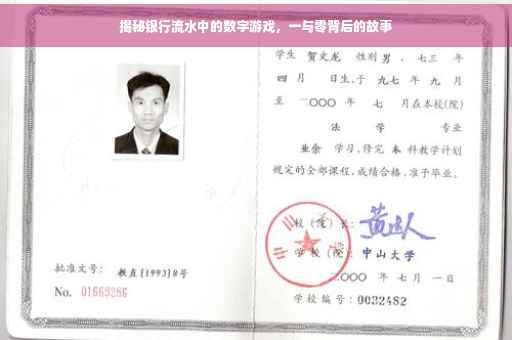 揭秘银行流水中的数字游戏，一与零背后的故事
学生 贺文龙 性别 男，七三 年
四 月 日生，于 九七 年 九 月
至 二〇〇〇 年 七 月在本校(院)
法 学 专业
业余 学习，修完 本 科教学计划
规定的全部课程，成绩合格，准予毕业。
校(院)长：
学校(院)：中山大学
批准文号：教直[1993]8号
二〇〇〇 年 七 月 一 日
No. 01663286
学校编号：0032482